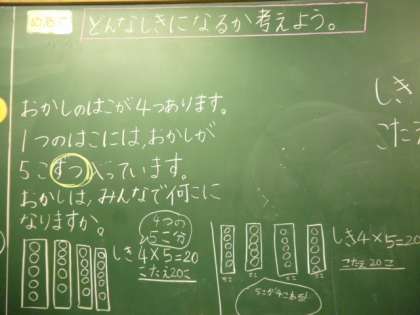 めあて
どんなしきになるか考えよう。
おかしのはこが4つあります。
1つのはこには、おかしが
5こずつ入っています。
おかしは、みんなで何こに
なりますか。
4つの
5こ分
しき4×5=20
こたえ20こ
しき4×5=20
こたえ20こ
しき
こたえ